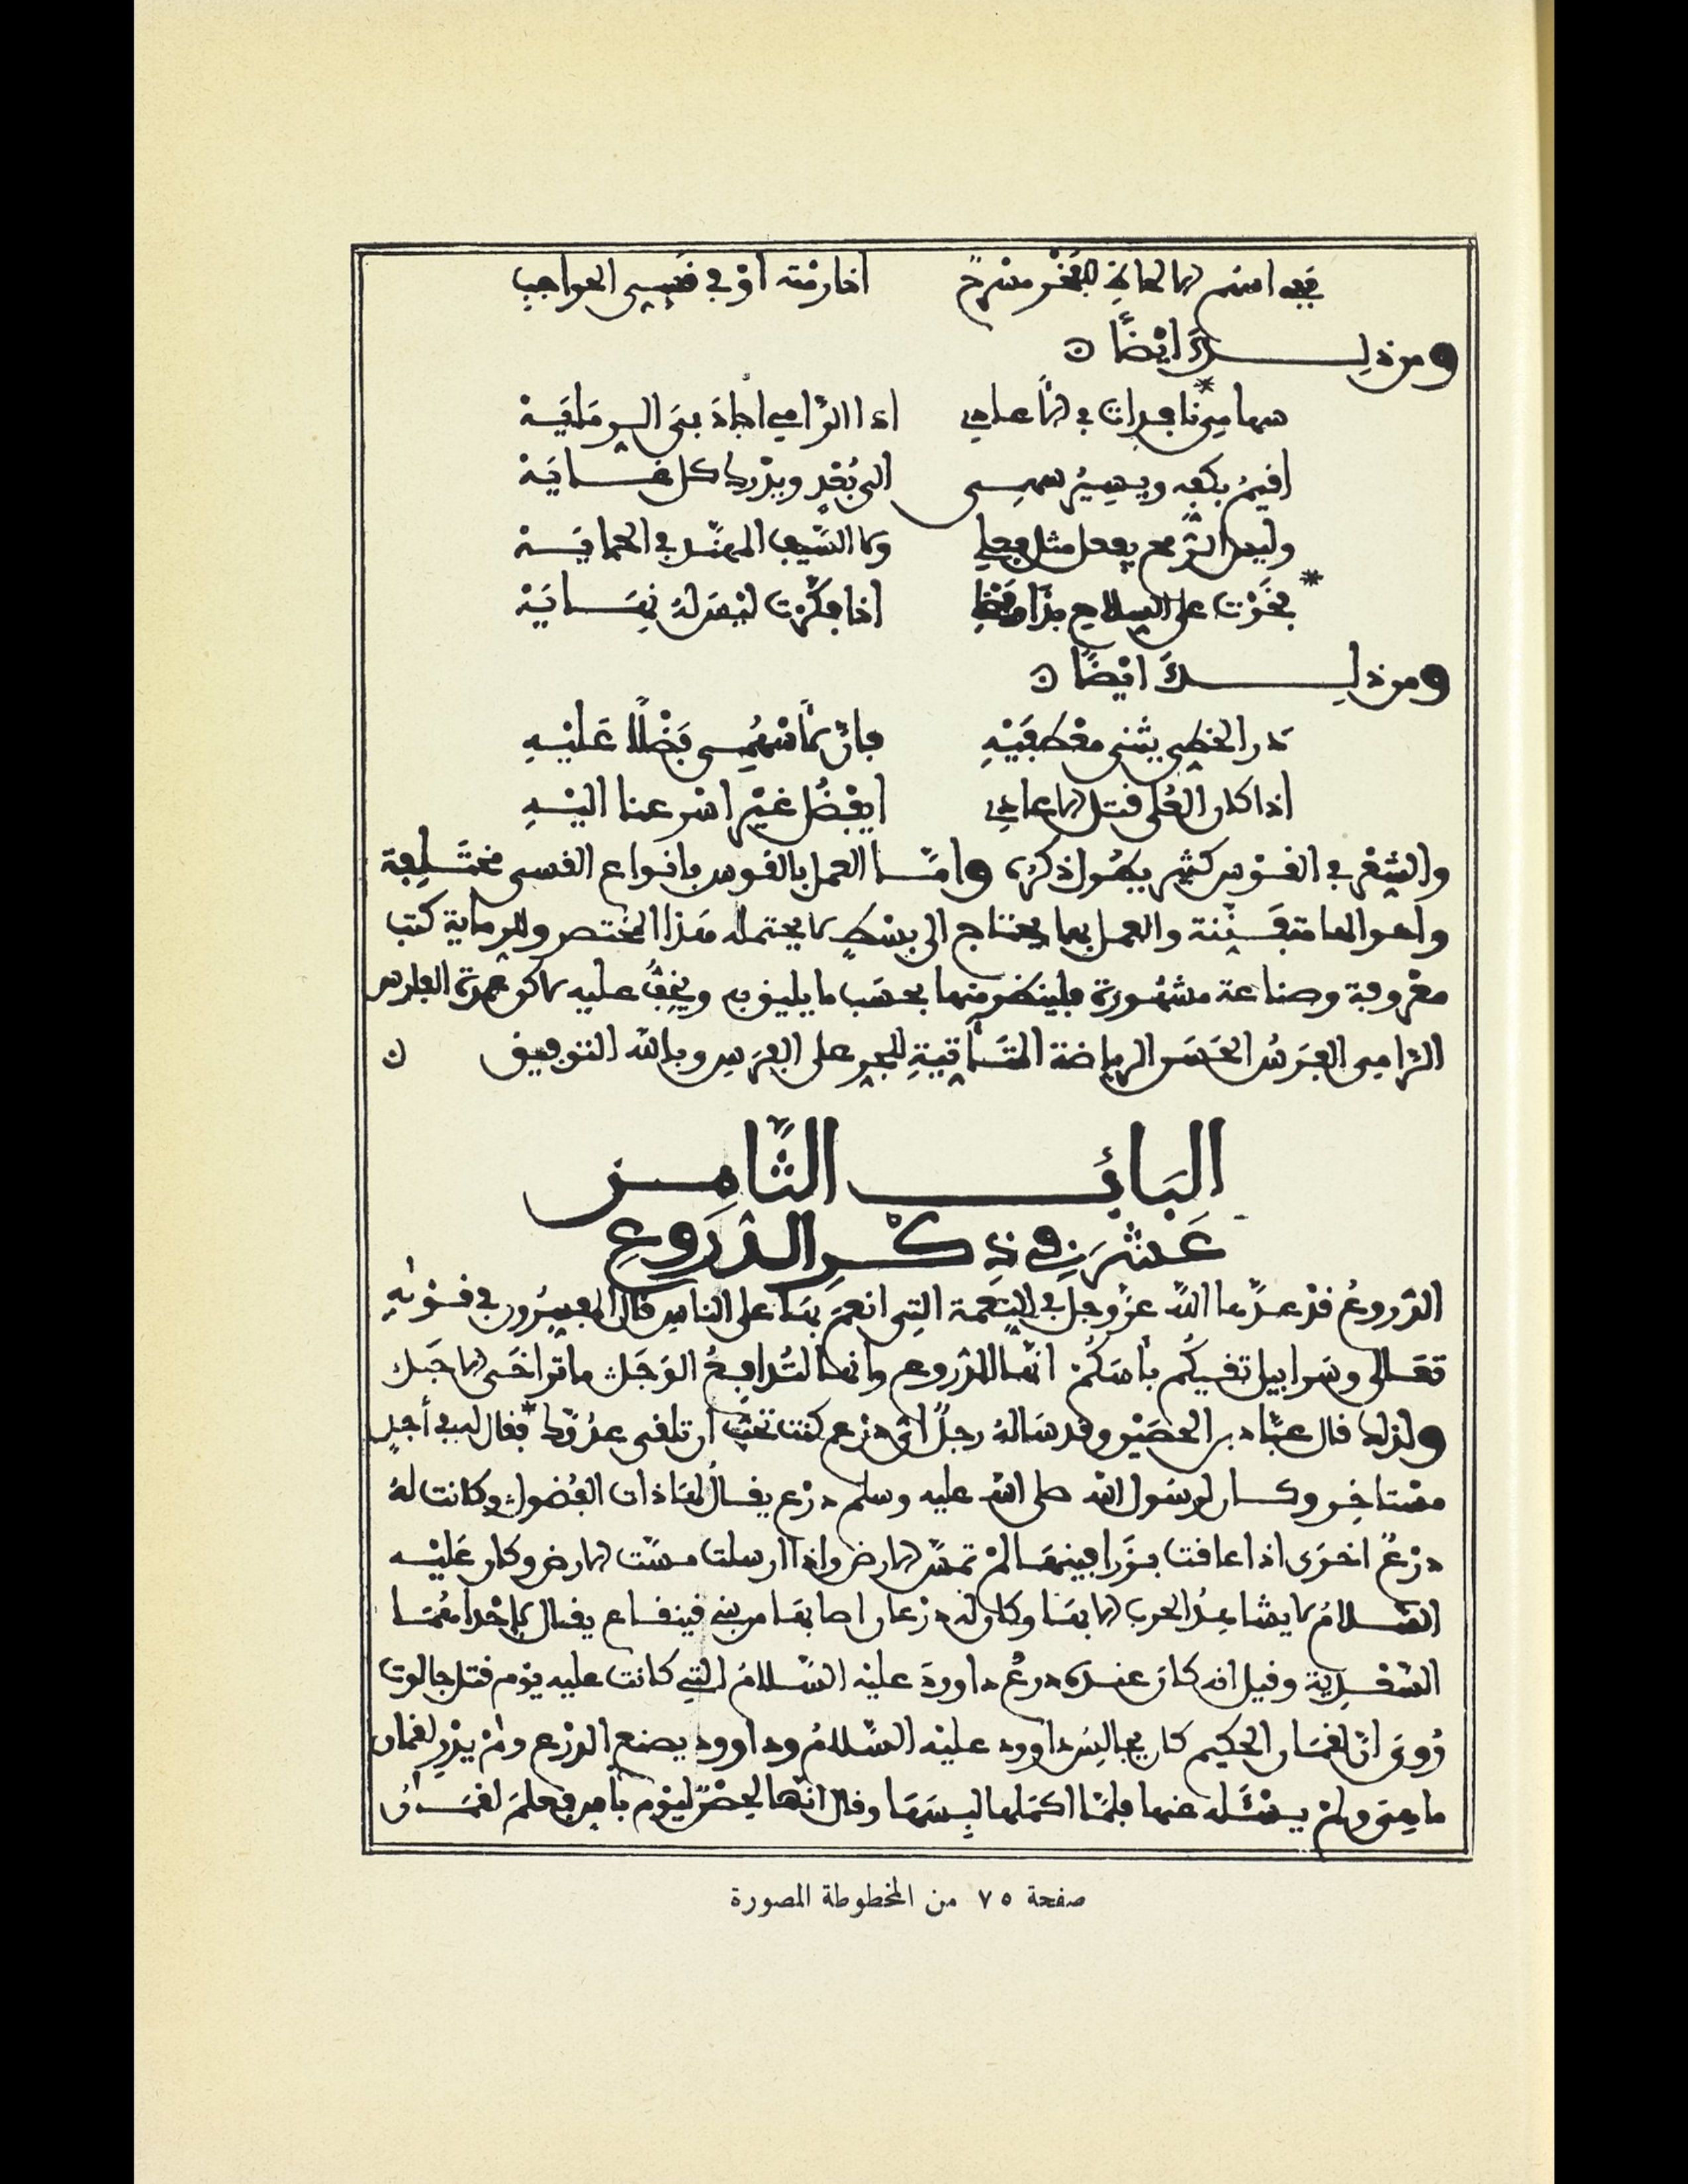 ففي اسهم الالحاظ للفخر مسرح اذا رمته او في قسي الحواجب
ومن ذلك أيضًا
سهامي نافذات في الأعادي اذا الرامي اجاد بي الرماية
اقيم بكفه ويسير سهمي الى بُعْدٍ ويدرك كل غاية
وليس الرمح يفعل مثل فعلي ولا السيف المهند في الحماية
فخرت على السلاح بذا وهذا اذا فكرت ليس له نهاية
ومن ذلك ايضًا
ذر الخطي يثني معطفيه فإن لأسهمي فضلًا عليه
اذا كان العُلى قتل الاعادي ايفضُل غير اسرعنا اليه
والشعر في القوس كثير يطول ذكره وامّا العمل بالقوس بانواع القسي مختلفة
واحوالها متفننة والعمل بها يحتاج الى بسط لا يحتمله هذا المختصر وللرماية كتب
معروفة وصناعة مشهورة فلينظر منها بحسب ما يليق به ويخفّ عليه لا كوعمدة الفارس
الرامي الفرسُ الحسن الرياضة المتأتية للجري على الفرس وبالله التوفيق
البابُ الثّامن
عَشَرَ في ذكر الدّروع
الدّروعُ قد عدّها الله عزّ وجل في النعمة التي انعم بها على الناس قال المفسرون في قوله
تعالى وسرابيل تقيكُم بأسكُمْ انّها الدروع وانها لتُدافعُ الوجل ما تراخى الاجل
ولذلك قال عبّاد بن الحصين وقد سأله رجلٌ اي درع كنت تحبّ ان تلقى عدوّك فقال لبيد في أجلٍ
مستاخر وكان لرسول الله صلى الله عليه وسلم درع يقال لها ذات الفضول وكانت له
درعٌ اخرى اذا علقت بزرافينها لم تمسّ الارض واذا ارسلت مسّت الارض وكان عليه
السلامُ لا يشاهدُ الحرب الا بها وكان له درعان اصابهما من بني قينقاع يقال لإحداهُما
السّغدية وقيل انه كان عنده درعُ داوود عليه السّلامُ التي كانت عليه يوم قتل جالوت
رُوي انّ لقمان الحكيم كان يجالسُ داوود عليه السّلامُ وداوود يصنع الدرع ولم يدر لقمان
ما هي ولم يسئله عنها فلمّا اكملها لبسها وقال انّها لحصن ليوم بأس فعلم لقمان
صفحة ٧٥ من المخطوطة المصورة